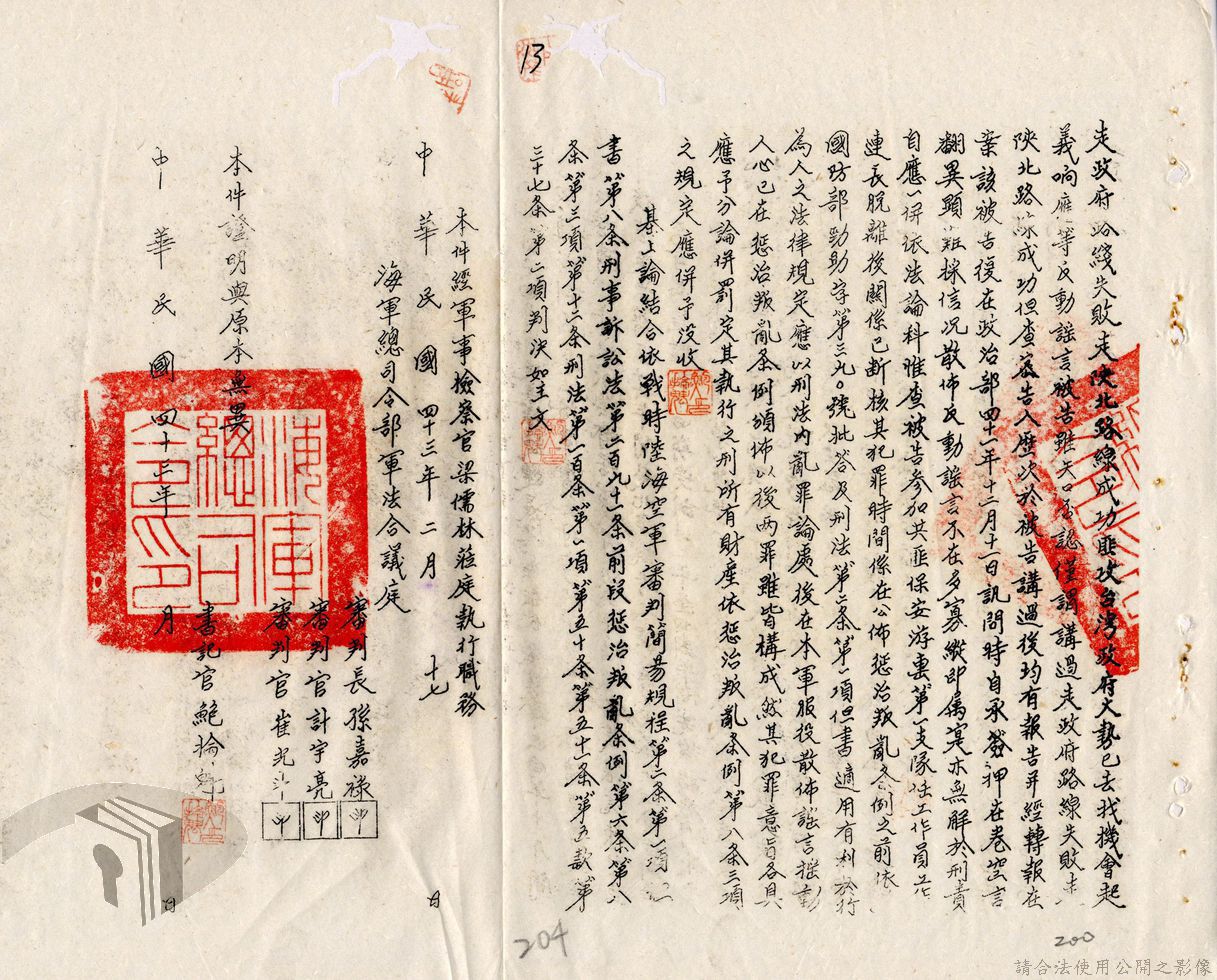 走政府路綫失敗走陝北路線成功匪攻台灣政府大勢已去找機會起
義响應等反動謡言被告雖矢口否認僅謂講過走政府路線失敗走
陝北路線成功但查密告人歷次於被告講過後均有報告并經轉報在
案該被告復在政治部四十一年十二月十一日訊問時自承簽押在卷空言
翻異顯難採信况散佈反動謡言不在多寡縱即属寔亦無解於刑責
自應併依法論科惟查被告参加共匪保安游击第一支隊任工作員
連長脱離後關係已断核其犯罪時間係在公佈惩治叛亂条例之前依
國防部勁助字第三九〇號批答及刑法第二条第一項但書適用有利於行
為人之法律規定應以刑法内亂罪論處後在本軍服役散佈謡言摇動
人心已在惩治叛亂条例頒佈以後两罪雖皆構成然其犯罪意旨各具
應予分論併罰定其執行之刑所有財産依惩治叛亂条例第八条三項
之規定應併予没收
基上論結合依戰時陸海空軍審判簡易規程第二条第一項
書第八条刑事訴訟法第二百九十一条前段惩治叛亂条例第六条第八
条第三項第十二条刑法第一百条第一項第五十条第五十一条第五款第
三十七条第二項判决如主文
13
本件經軍事檢察官梁儒林蒞庭執行職務
中華民國四十三年二月十七日
海軍總司令部軍法合議庭
審判長孫嘉禄印
審判官計宇亮印
審判官崔光斗印
本件證明與原本無異
書記官鮑掄
中華民國四十三年 月 日
海軍總司令印
204
200
請合法使用公開之影像